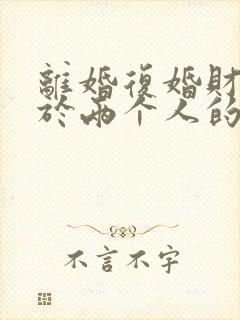 離婚復婚財
於兩个人的
不言不字